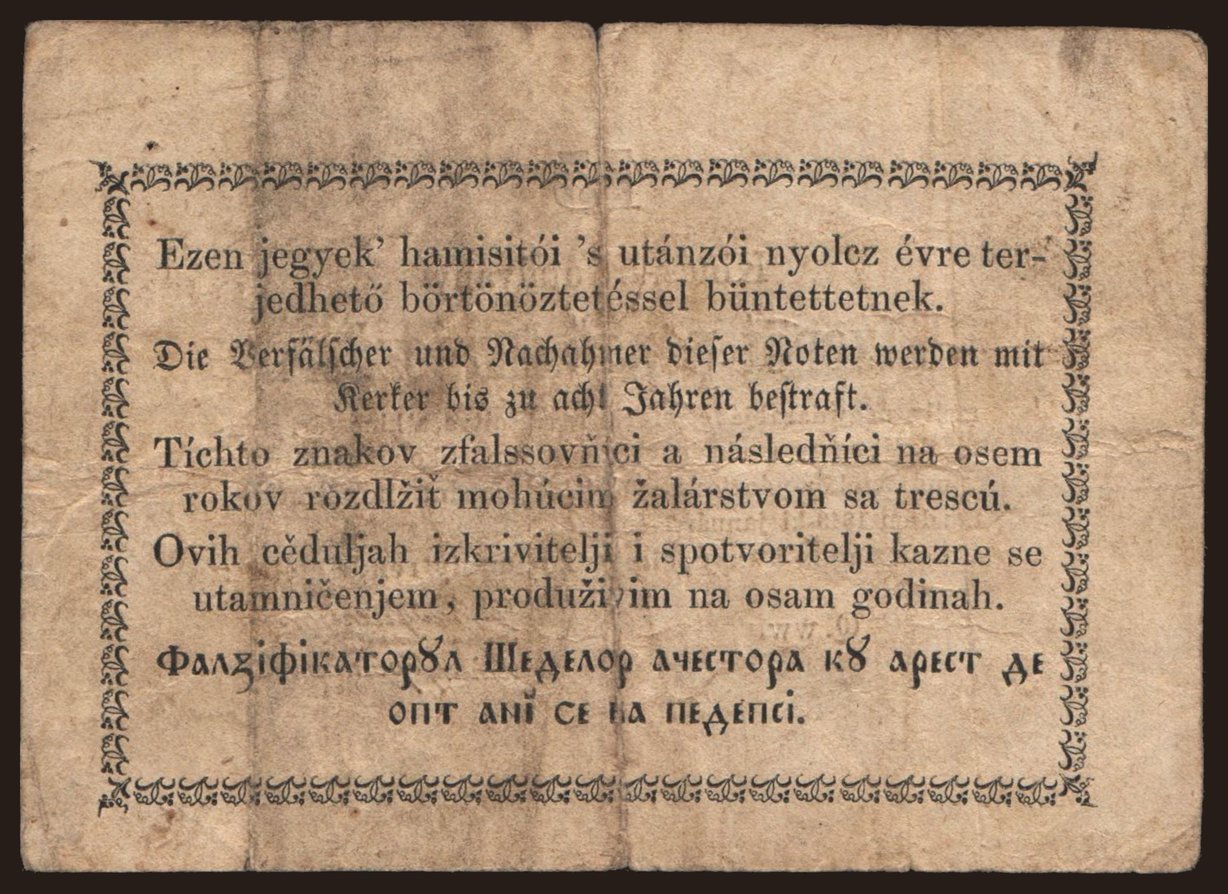 Ezen jegyek’ hamisitói ’s utánzói nyolcz évre ter-
jedhető börtönöztetéssel büntettetnek.
Die Verfälscher und Nachahmer dieser Noten werden mit
Kerker bis zu acht Jahren bestraft.
Tíchto znakov zfalssovňíci a následňíci na osem
rokov rozdlžiť mohúcim žalárstvom sa trescú.
Ovih cěduljah izkrivitelji i spotvoritelji kazne se
utamničenjem, produživim na osam godinah.
Фалѯіфікаторꙋл Шеделор ачестора кꙋ арест де
опт анĭ се ва педепсі.